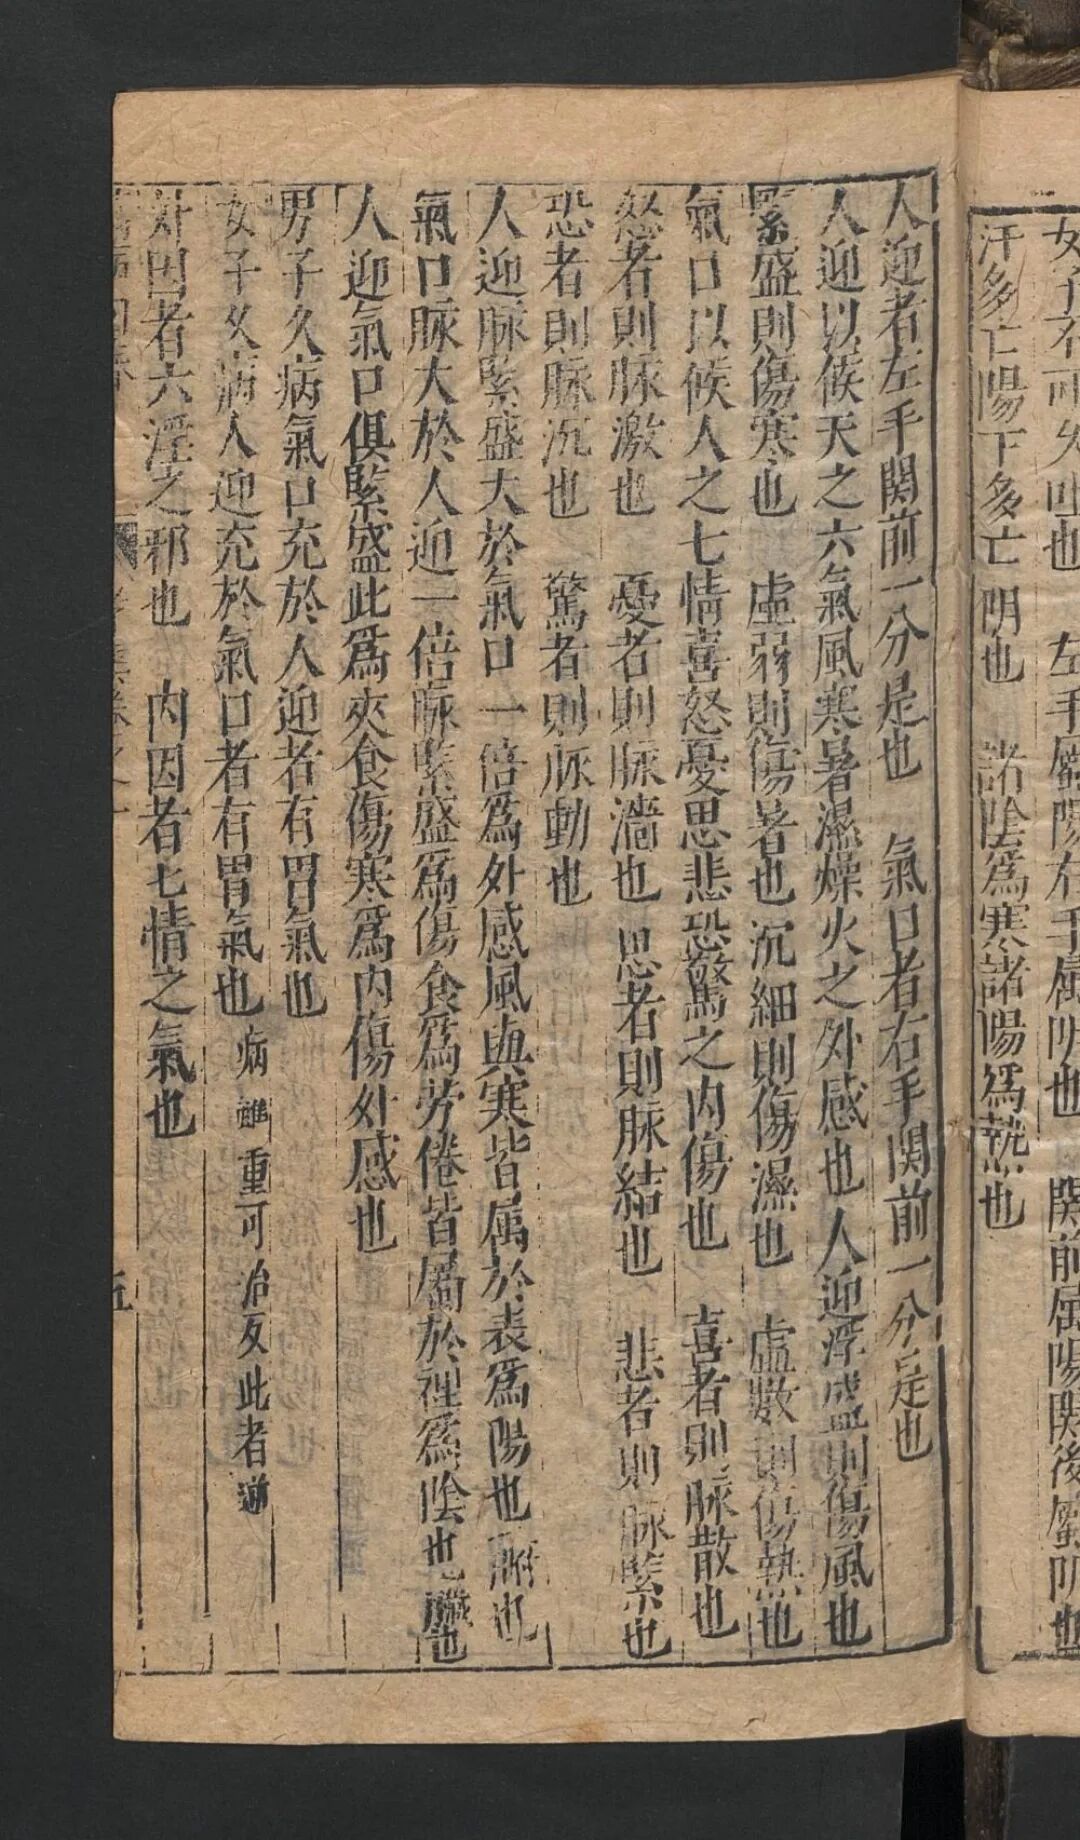 女子不可久吐也　左手屬陽右手属阴也　関前属陽関後屬阴也
汗多亡陽下多亡阴也　諸陰爲寒諸陽爲熱也
人迎者左手関前一分是也　氣口者右手関前一分是也
人迎以候天之六氣風寒暑濕燥火之外感也人迎浮盛則傷風也
緊盛則傷寒也　虛弱則傷暑也沉細則傷濕也　虛數則傷熱也
氣口以候人之七情喜怒憂思悲恐驚之内傷也　喜者則脉散也
怒者則脉激也　憂者則脉濇也　思者則脉結也　悲者則脉緊也
恐者則脉沉也　驚者則脉動也
人迎脉緊盛大於氣口一倍爲外感風與寒皆属於表爲陽也腑也
氣口脉大於人迎一倍脉緊盛爲傷食爲劳倦皆屬於裡爲陰也臟也
人迎氣口俱緊盛此爲夾食傷寒爲内傷外感也
男子久病氣口充於人迎者有胃氣也
女子久病人迎充於氣口者有胃氣也病雖重可治反此者逆
外因者六淫之邪也　内因者七情之氣也
五